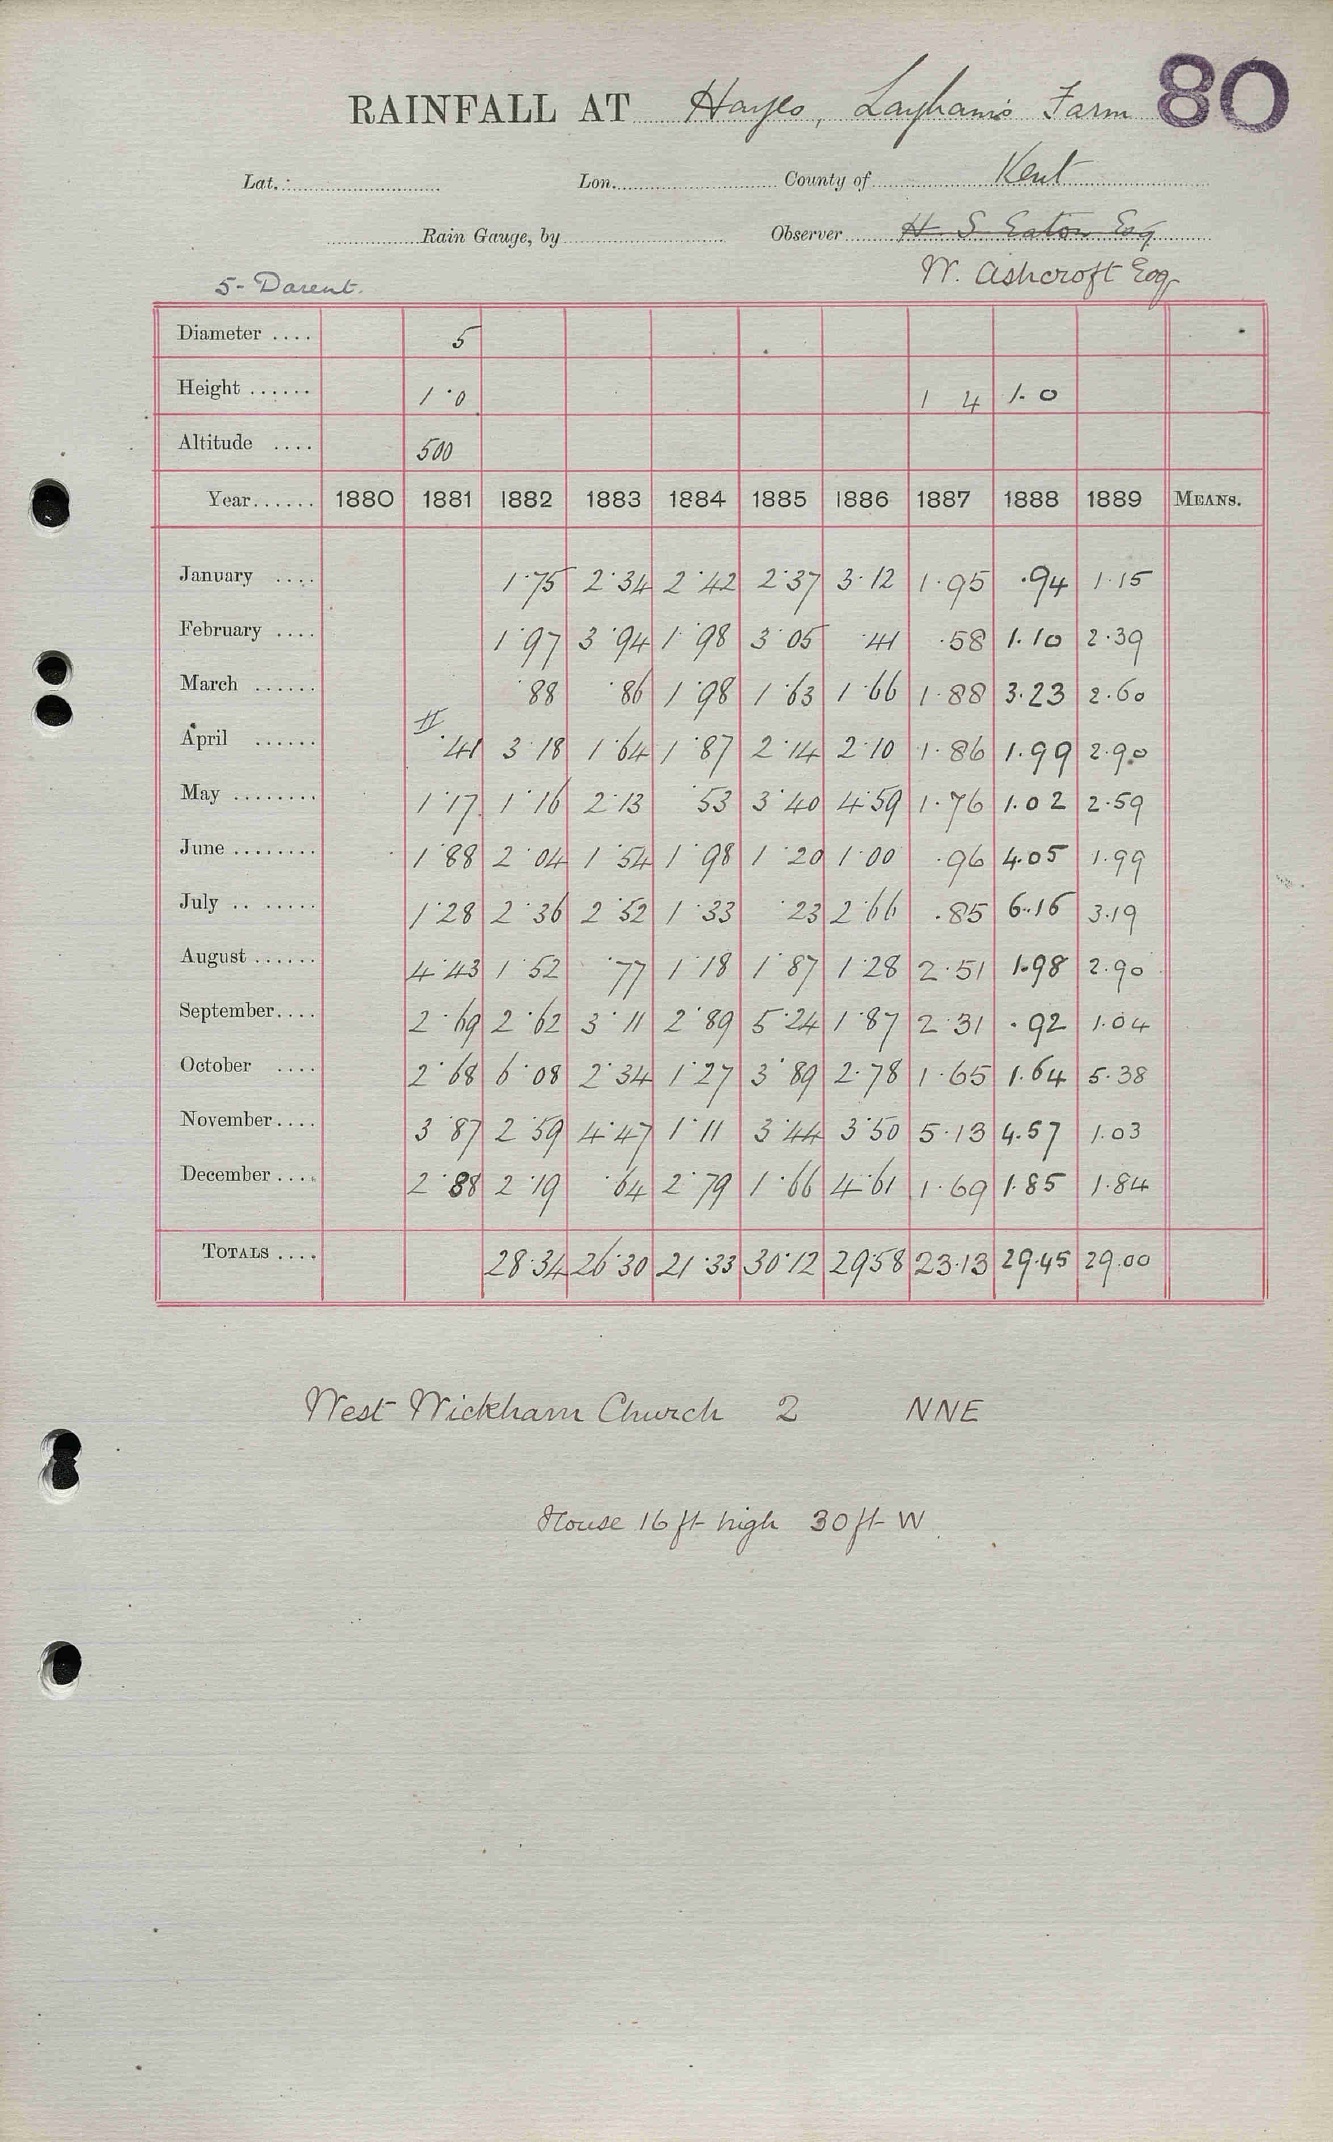 80
RAINFALL AT Hayes, Layham's Farm
Lat. Lon. County of Kent
Rain Gauge, by Observer H. S. Eaton Esq
W. Ashcroft Esq
5- Darent.
Diameter .... 5
Height ...... 1·0 1 4 1·0
Altitude .... 500
Year...... 1880 1881 1882 1883 1884 1885 1886 1887 1888 1889 MEANS.
January .... 1·75 2·34 2·42 2·37 3·12 1·95 ·94 1·15
February .... 1·97 3·94 1·98 3·05 ·41 ·58 1·10 2·39
March ...... ·88 ·86 1·98 1·63 1·66 1·88 3·23 2·60
April ...... ·41 3·18 1·64 1·87 2·14 2·10 1·86 1·99 2·90
May ........ 1·17 1·16 2·13 ·53 3·40 4·59 1·76 1·02 2·59
June ........ 1·88 2·04 1·54 1·98 1·20 1·00 ·96 4·05 1·99
July .. ...... 1·28 2·36 2·52 1·33 ·23 2·66 ·85 6·16 3·19
August ...... 4·43 1·52 ·77 1·18 1·87 1·28 2·51 1·98 2·90
September.... 2·69 2·62 3·11 2·89 5·24 1·87 2·31 ·92 1·04
October .... 2·68 6·08 2·34 1·27 3·89 2·78 1·65 1·64 5·38
November.... 3·87 2·59 4·47 1·11 3·44 3·50 5·13 4·57 1·03
December .... 2·88 2·19 ·64 2·79 1·66 4·61 1·69 1·85 1·84
TOTALS .... 28·34 26·30 21·33 30·12 29·58 23·13 29·45 29·00
West Wickham Church 2 NNE
House 16 ft high 30 ft W